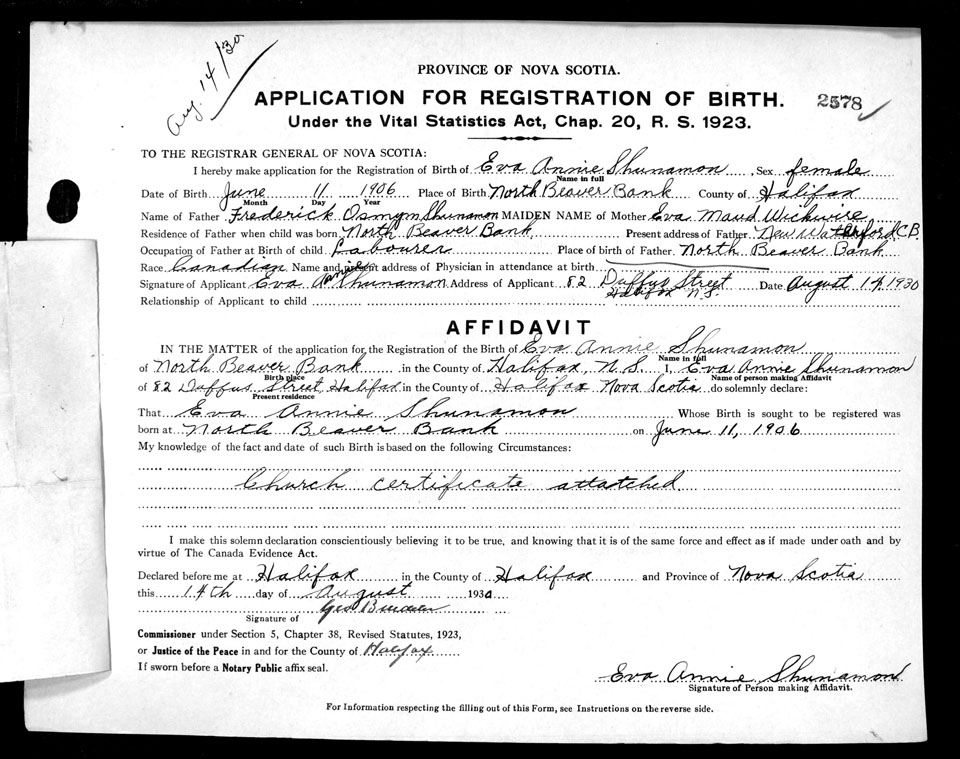 Aug. 14/30
PROVINCE OF NOVA SCOTIA.
APPLICATION FOR REGISTRATION OF BIRTH.
2578
Under the Vital Statistics Act, Chap. 20, R. S. 1923.
TO THE REGISTRAR GENERAL OF NOVA SCOTIA:
I hereby make application for the Registration of Birth of Eva Annie Shunamon, Sex female
Name in full
Date of Birth June 11 1906 Place of Birth North Beaver Bank County of Halifax
Month Day Year
Name of Father Frederick Osmym Shunamon MAIDEN NAME of Mother Eva Maud Wickwire
Residence of Father when child was born North Beaver Bank Present address of Father New Waterford C.B.
Occupation of Father at Birth of child Labourer Place of birth of Father North Beaver Bank
Race Canadian Name and present address of Physician in attendance at birth
Signature of Applicant Eva Annie Shunamon Address of Applicant 82 Duffus Street Date August 14, 1930
Halifax N.S.
Relationship of Applicant to child
AFFIDAVIT
IN THE MATTER of the application for the Registration of the Birth of Eva Annie Shunamon
Name in full
of North Beaver Bank in the County of Halifax, N.S. I, Eva Annie Shunamon
Birth place Name of person making Affidavit
of 82 Duffus Street, Halifax in the County of Halifax Nova Scotia do solemnly declare:
Present residence
That Eva Annie Shunamon Whose Birth is sought to be registered was
born at North Beaver Bank on June 11, 1906
My knowledge of the fact and date of such Birth is based on the following Circumstances:
Church certificate attatched
I make this solemn declaration conscientiously believing it to be true, and knowing that it is of the same force and effect as if made under oath and by
virtue of The Canada Evidence Act.
Declared before me at Halifax in the County of Halifax and Province of Nova Scotia
this 14th day of August 1930
Geo
Signature of
Commissioner under Section 5, Chapter 38, Revised Statutes, 1923,
or Justice of the Peace in and for the County of Halifax
If sworn before a Notary Public affix seal.
Eva Annie Shunamon
Signature of Person making Affidavit.
For Information respecting the filling out of this Form, see Instructions on the reverse side.